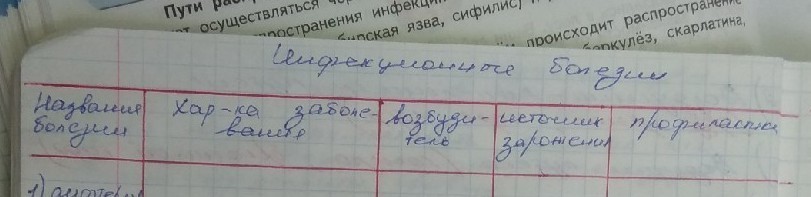 Пути рас
осуществляться
ространения инфекц
бирская язва, сифилис)
происходит распространение
беркулёз, скарлатина,
Инфекционные болезни
Название
болезни
хар-ка заболе-
вания
возбуди-
тель
источник
заражения
профиласти
1)